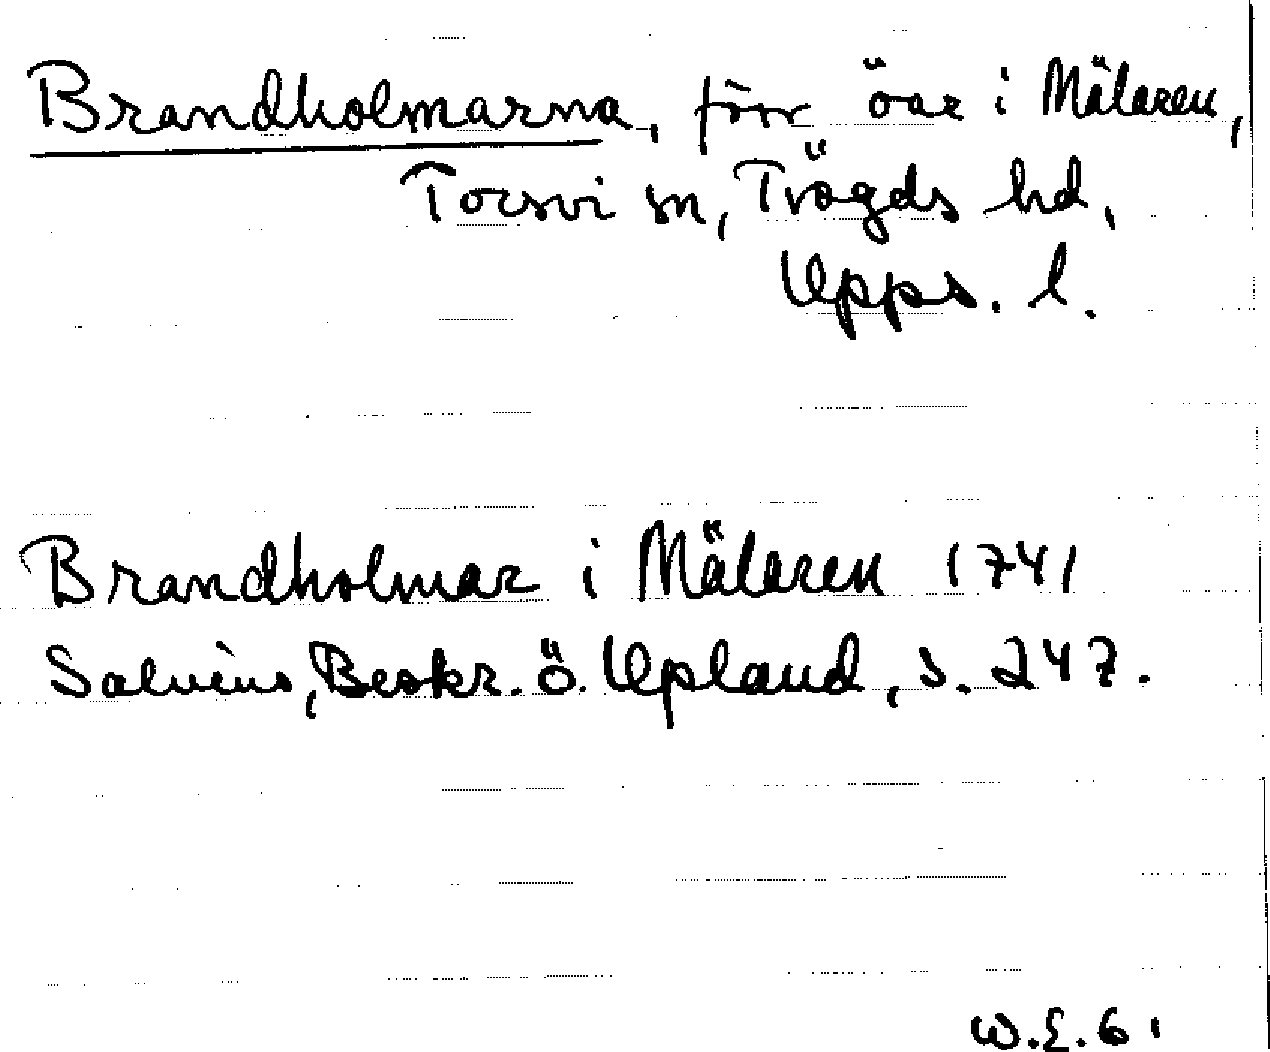 Brandholmarna, förr öar i Mälaren,
Torsvi sn, Trögds hd,
Upps. l.
Brandholmar i Mälaren 1741
Salvius, Beskr. ö. Upland, s. 247.
W.E. 61